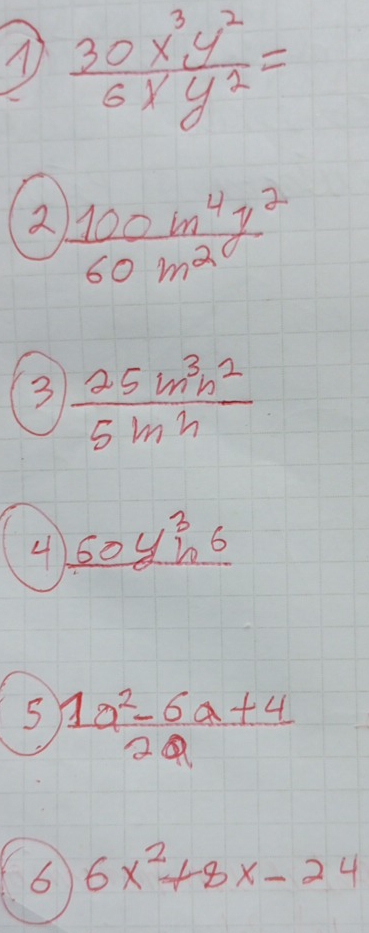 1) 30x³y² =
6xy²
2) 100m⁴y²
60m²
3) 25m³n²
5mn
4) 60y³n⁶
5) 1a²-6a+4
2a
6) 6x²+8x-24